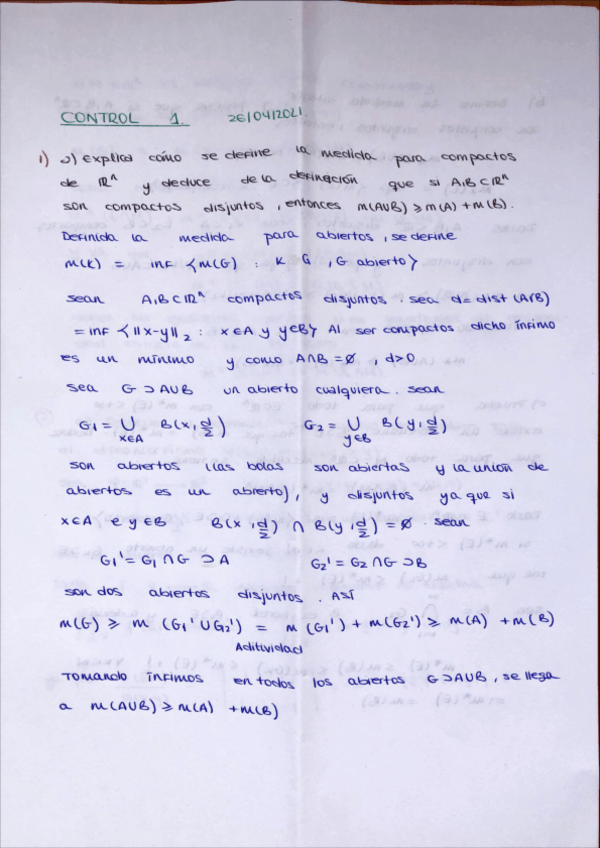 CONTROL 1. 26/04/2021
1) a) Explica cómo se define la medida para compactos
de ℝⁿ y deduce de la definición que si A,B⊂ℝⁿ
son compactos disjuntos, entonces m(A∪B) ≥ m(A) + m(B).
Definida la medida para abiertos, se define
m(K) = inf {m(G) : K G, G abierto}
sean A,B⊂ℝⁿ compactos disjuntos. sea d = dist (A,B)
= inf {||x-y||₂ : x∈A y y∈B} Al ser compactos dicho ínfimo
es un mínimo y como A∩B = ∅, d>0
sea G ⊃ A∪B un abierto cualquiera. sean
G₁ = ∪_{x∈A} B(x, d/2) G₂ = ∪_{y∈B} B(y, d/2)
son abiertos (las bolas son abiertas y la unión de
abiertos es un abierto), y disjuntos ya que si
x∈A, e y∈B B(x, d/2) ∩ B(y, d/2) = ∅. sean
G₁' = G₁ ∩ G ⊃ A G₂' = G₂ ∩ G ⊃ B
son dos abiertos disjuntos. Así
m(G) ≥ m (G₁' ∪ G₂') = m (G₁') + m(G₂') ≥ m(A) + m(B)
Aditividad
Tomando ínfimos en todos los abiertos G⊃A∪B, se llega
a m(A∪B) ≥ m(A) + m(B)